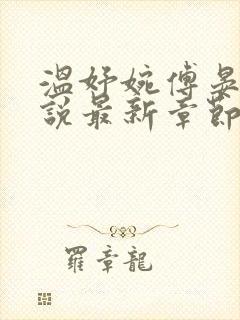 溫妤婉傅晏
說最新章節
羅章龍